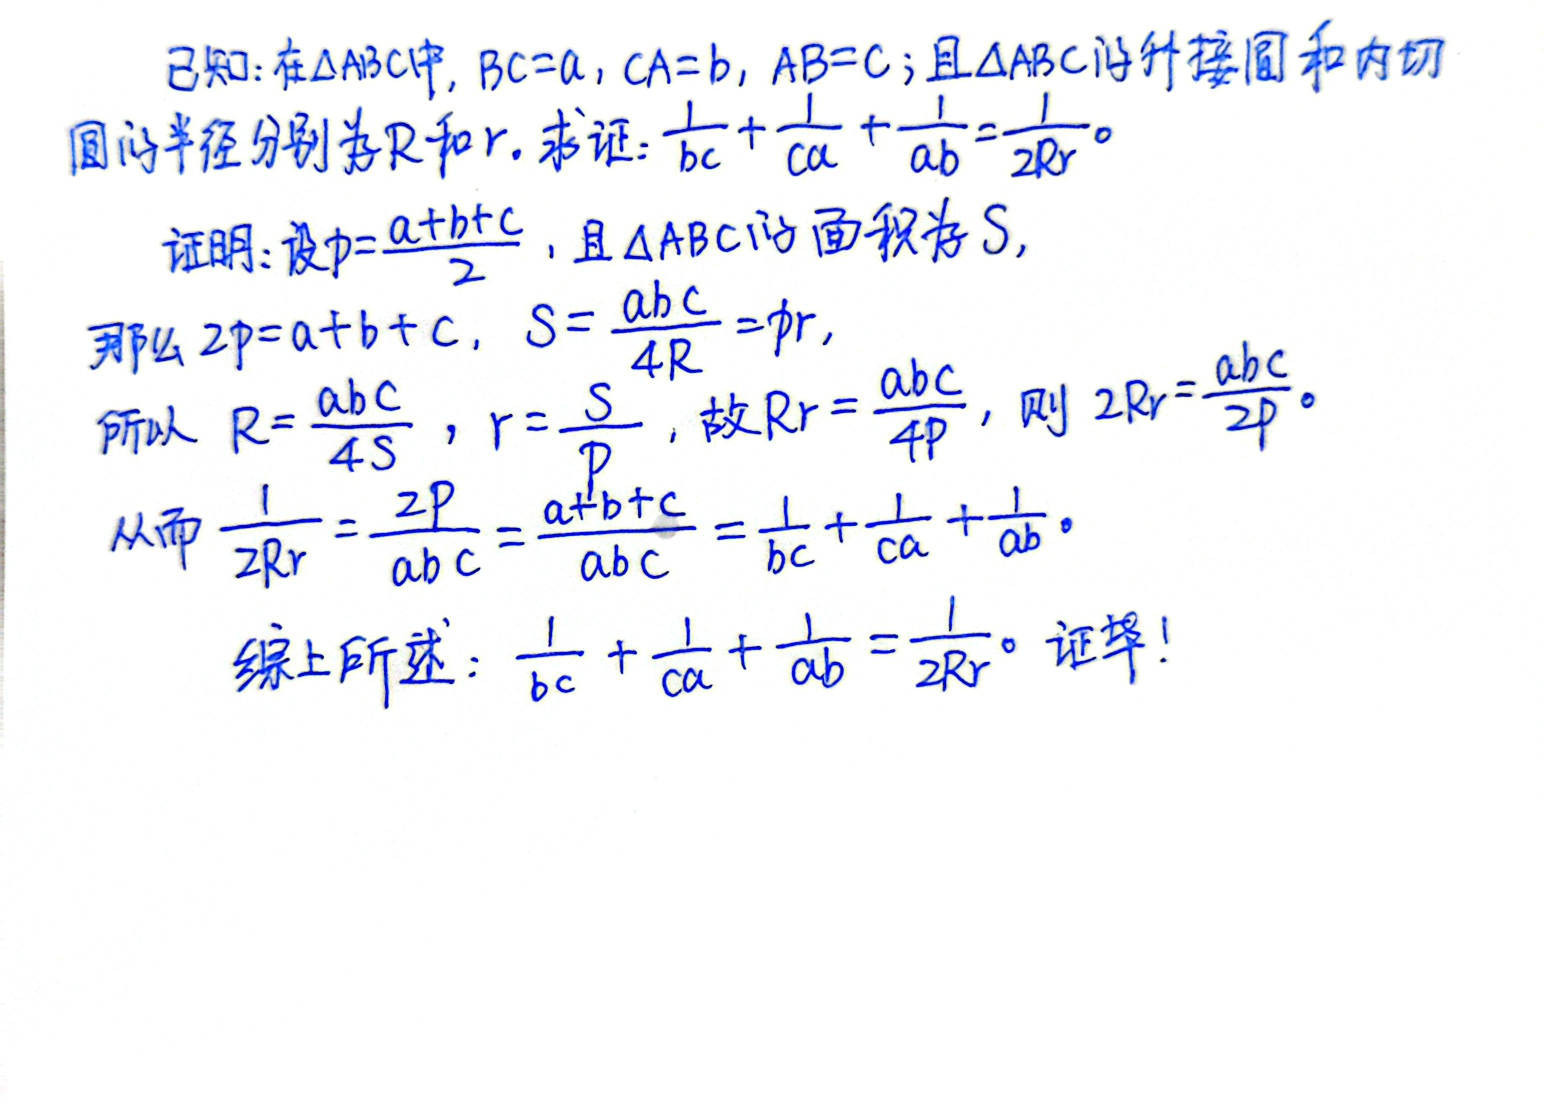 已知:在△ABC中, BC=a, CA=b, AB=c;且△ABC的外接圆和内切
圆的半径分别为R和r。求证: 1/bc + 1/ca + 1/ab = 1/2Rr。
证明:设p=(a+b+c)/2,且△ABC的面积为S,
那么2p=a+b+c, S=abc/4R=pr,
所以 R=abc/4S, r=S/p,故Rr=abc/4p,则 2Rr=abc/2p。
从而 1/2Rr = 2p/abc = (a+b+c)/abc = 1/bc + 1/ca + 1/ab。
综上所述: 1/bc + 1/ca + 1/ab = 1/2Rr。证毕!